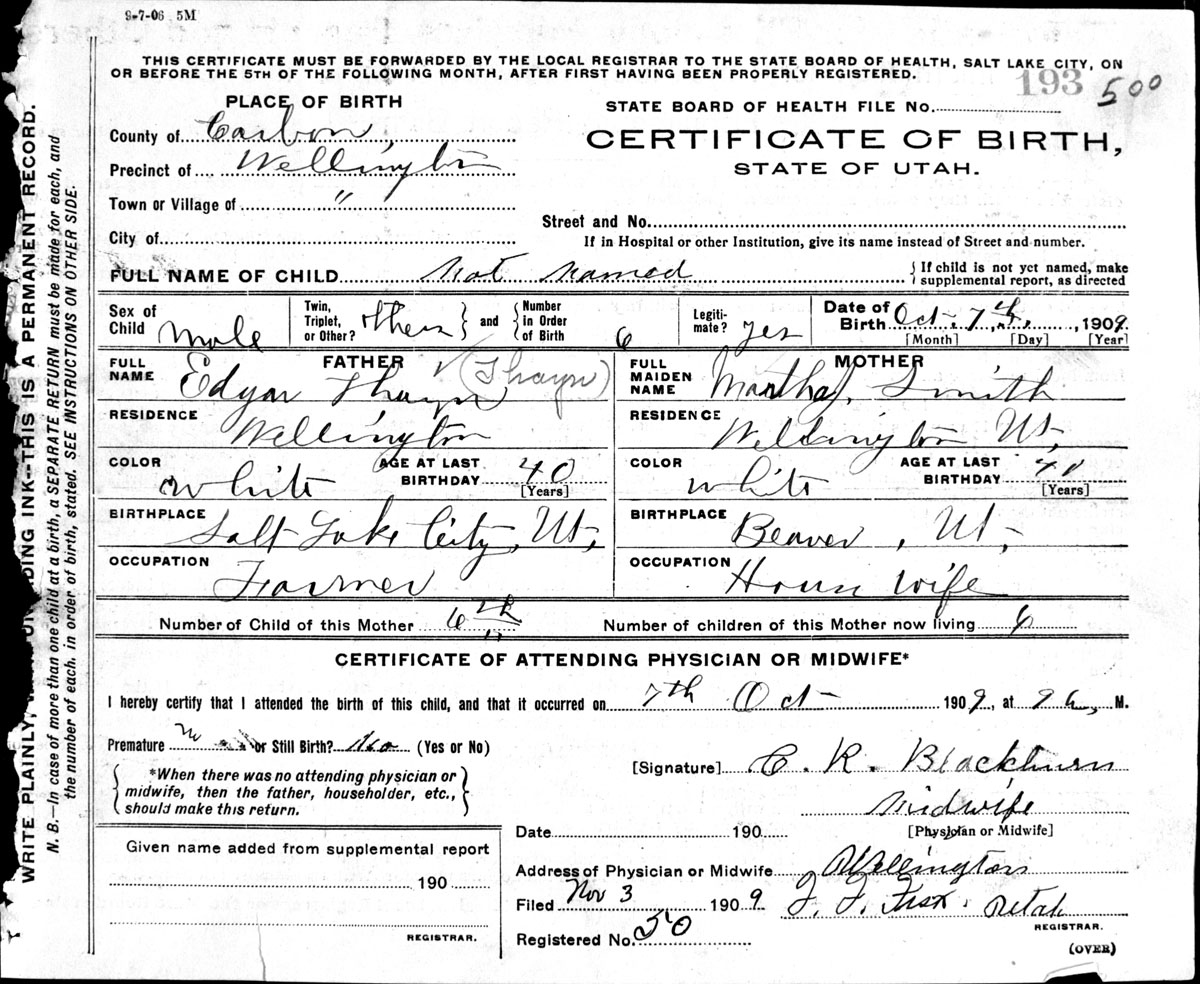 9-7-06 5M
THIS CERTIFICATE MUST BE FORWARDED BY THE LOCAL REGISTRAR TO THE STATE BOARD OF HEALTH, SALT LAKE CITY, ON
OR BEFORE THE 5TH OF THE FOLLOWING MONTH, AFTER FIRST HAVING BEEN PROPERLY REGISTERED.
193 500
PLACE OF BIRTH
STATE BOARD OF HEALTH FILE No.
County of Carbon
CERTIFICATE OF BIRTH,
Precinct of Wellington
STATE OF UTAH.
Town or Village of "
Street and No.
City of
If in Hospital or other Institution, give its name instead of Street and number.
FULL NAME OF CHILD Not Named { If child is not yet named, make supplemental report, as directed
Sex of Child Male Twin, Triplet, or Other? Other } and { Number in Order of Birth 6 Legiti-mate? yes Date of Birth Oct. 7th, 1909.
[Month] [Day] [Year]
FATHER
FULL NAME Edgar Thayn (Thayn)
MOTHER
FULL MAIDEN NAME Martha J. Smith
RESIDENCE Wellington
RESIDENCE Wellington Ut,
COLOR White AGE AT LAST BIRTHDAY 40 [Years]
COLOR White AGE AT LAST BIRTHDAY 41 [Years]
BIRTHPLACE Salt Lake City, Ut,
BIRTHPLACE Beaver, Ut,
OCCUPATION Farmer
OCCUPATION House wife
Number of Child of this Mother 6th Number of children of this Mother now living 6
CERTIFICATE OF ATTENDING PHYSICIAN OR MIDWIFE*
I hereby certify that I attended the birth of this child, and that it occurred on 7th Oct 1909, at 9 a, M.
Premature no or Still Birth? No (Yes or No)
[Signature] C. R. Blackburn
{ *When there was no attending physician or midwife, then the father, householder, etc., should make this return. }
Midwife
[Physician or Midwife]
Date 190
Given name added from supplemental report
Address of Physician or Midwife Wellington
190
Filed Nov 3 1909 Utah
REGISTRAR.
Registered No. 50
REGISTRAR.
(OVER)
WRITE PLAINLY, DING INK--THIS IS A PERMANENT RECORD.
N. B.--In case of more than one child at a birth, a SEPARATE RETURN must be made for each, and
the number of each, in order of birth, stated. SEE INSTRUCTIONS ON OTHER SIDE.